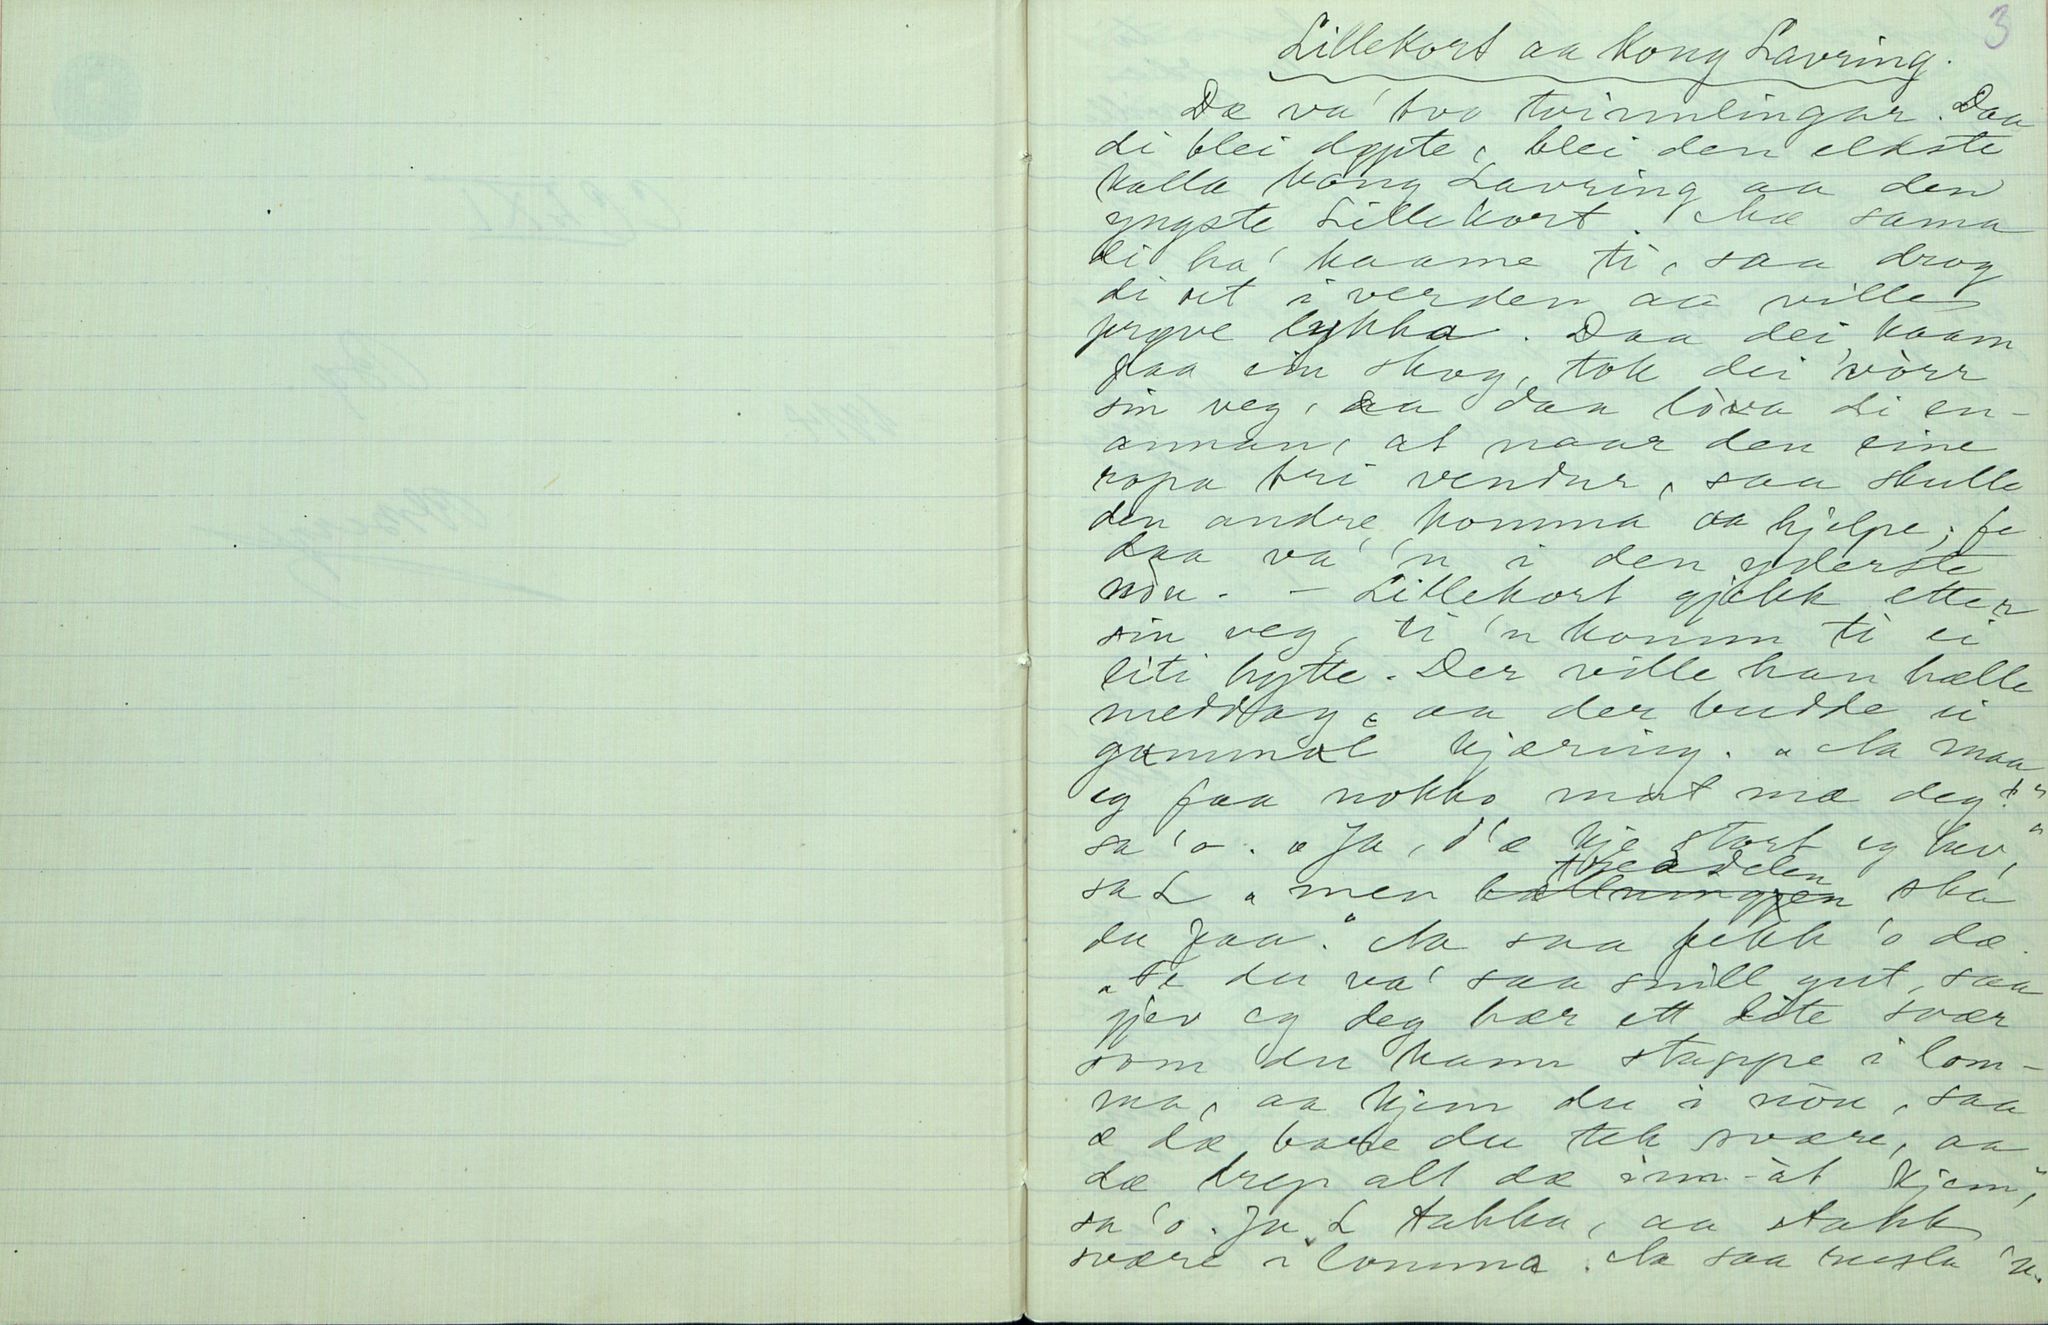 3
Lillekort aa Kong Lavring.
Dæ va' tvo tvinnlingar. Daa
di blei døpte, blei den eldste
kalla kong Lavring aa den
yngste Lillekort. Mæ sama
di ha' kaame ti, saa drog
di ut i verden aa ville
prøve lykka. Daa dei kaam
paa ein skog, tok dei 'vòrr
sin veg, aa daa lòva di en-
annan, at naar den eine
ropa tri vendur, saa skulle
den andre komma aa hjelpe; fe
daa va' 'n i den yderste
nòu. - Lillekort gjekk etter
sin veg, ti 'n komm ti ei
liti hytte. Der ville han hælle
meddag, aa der budde ei
gammal kjæring. „Aa maa
eg faa nokko mat mæ deg?"
sa 'o. „Ja, d'æ kje stort eg hev,"
sa L „men tveadelen ska
du faa." Aa saa fekk 'o dæ.
„Fe du va' saa snill gut, saa
gjev eg deg hær ett lite svær
som du kann stappe i lom-
ma, aa kjem du i nòu, saa
æ dæ bare du tek svære, aa
dæ drep alt dæ inn-åt kjem,"
sa 'o. Ja, L takka, aa stakk
svære i lomma. Aa saa rusla 'n.